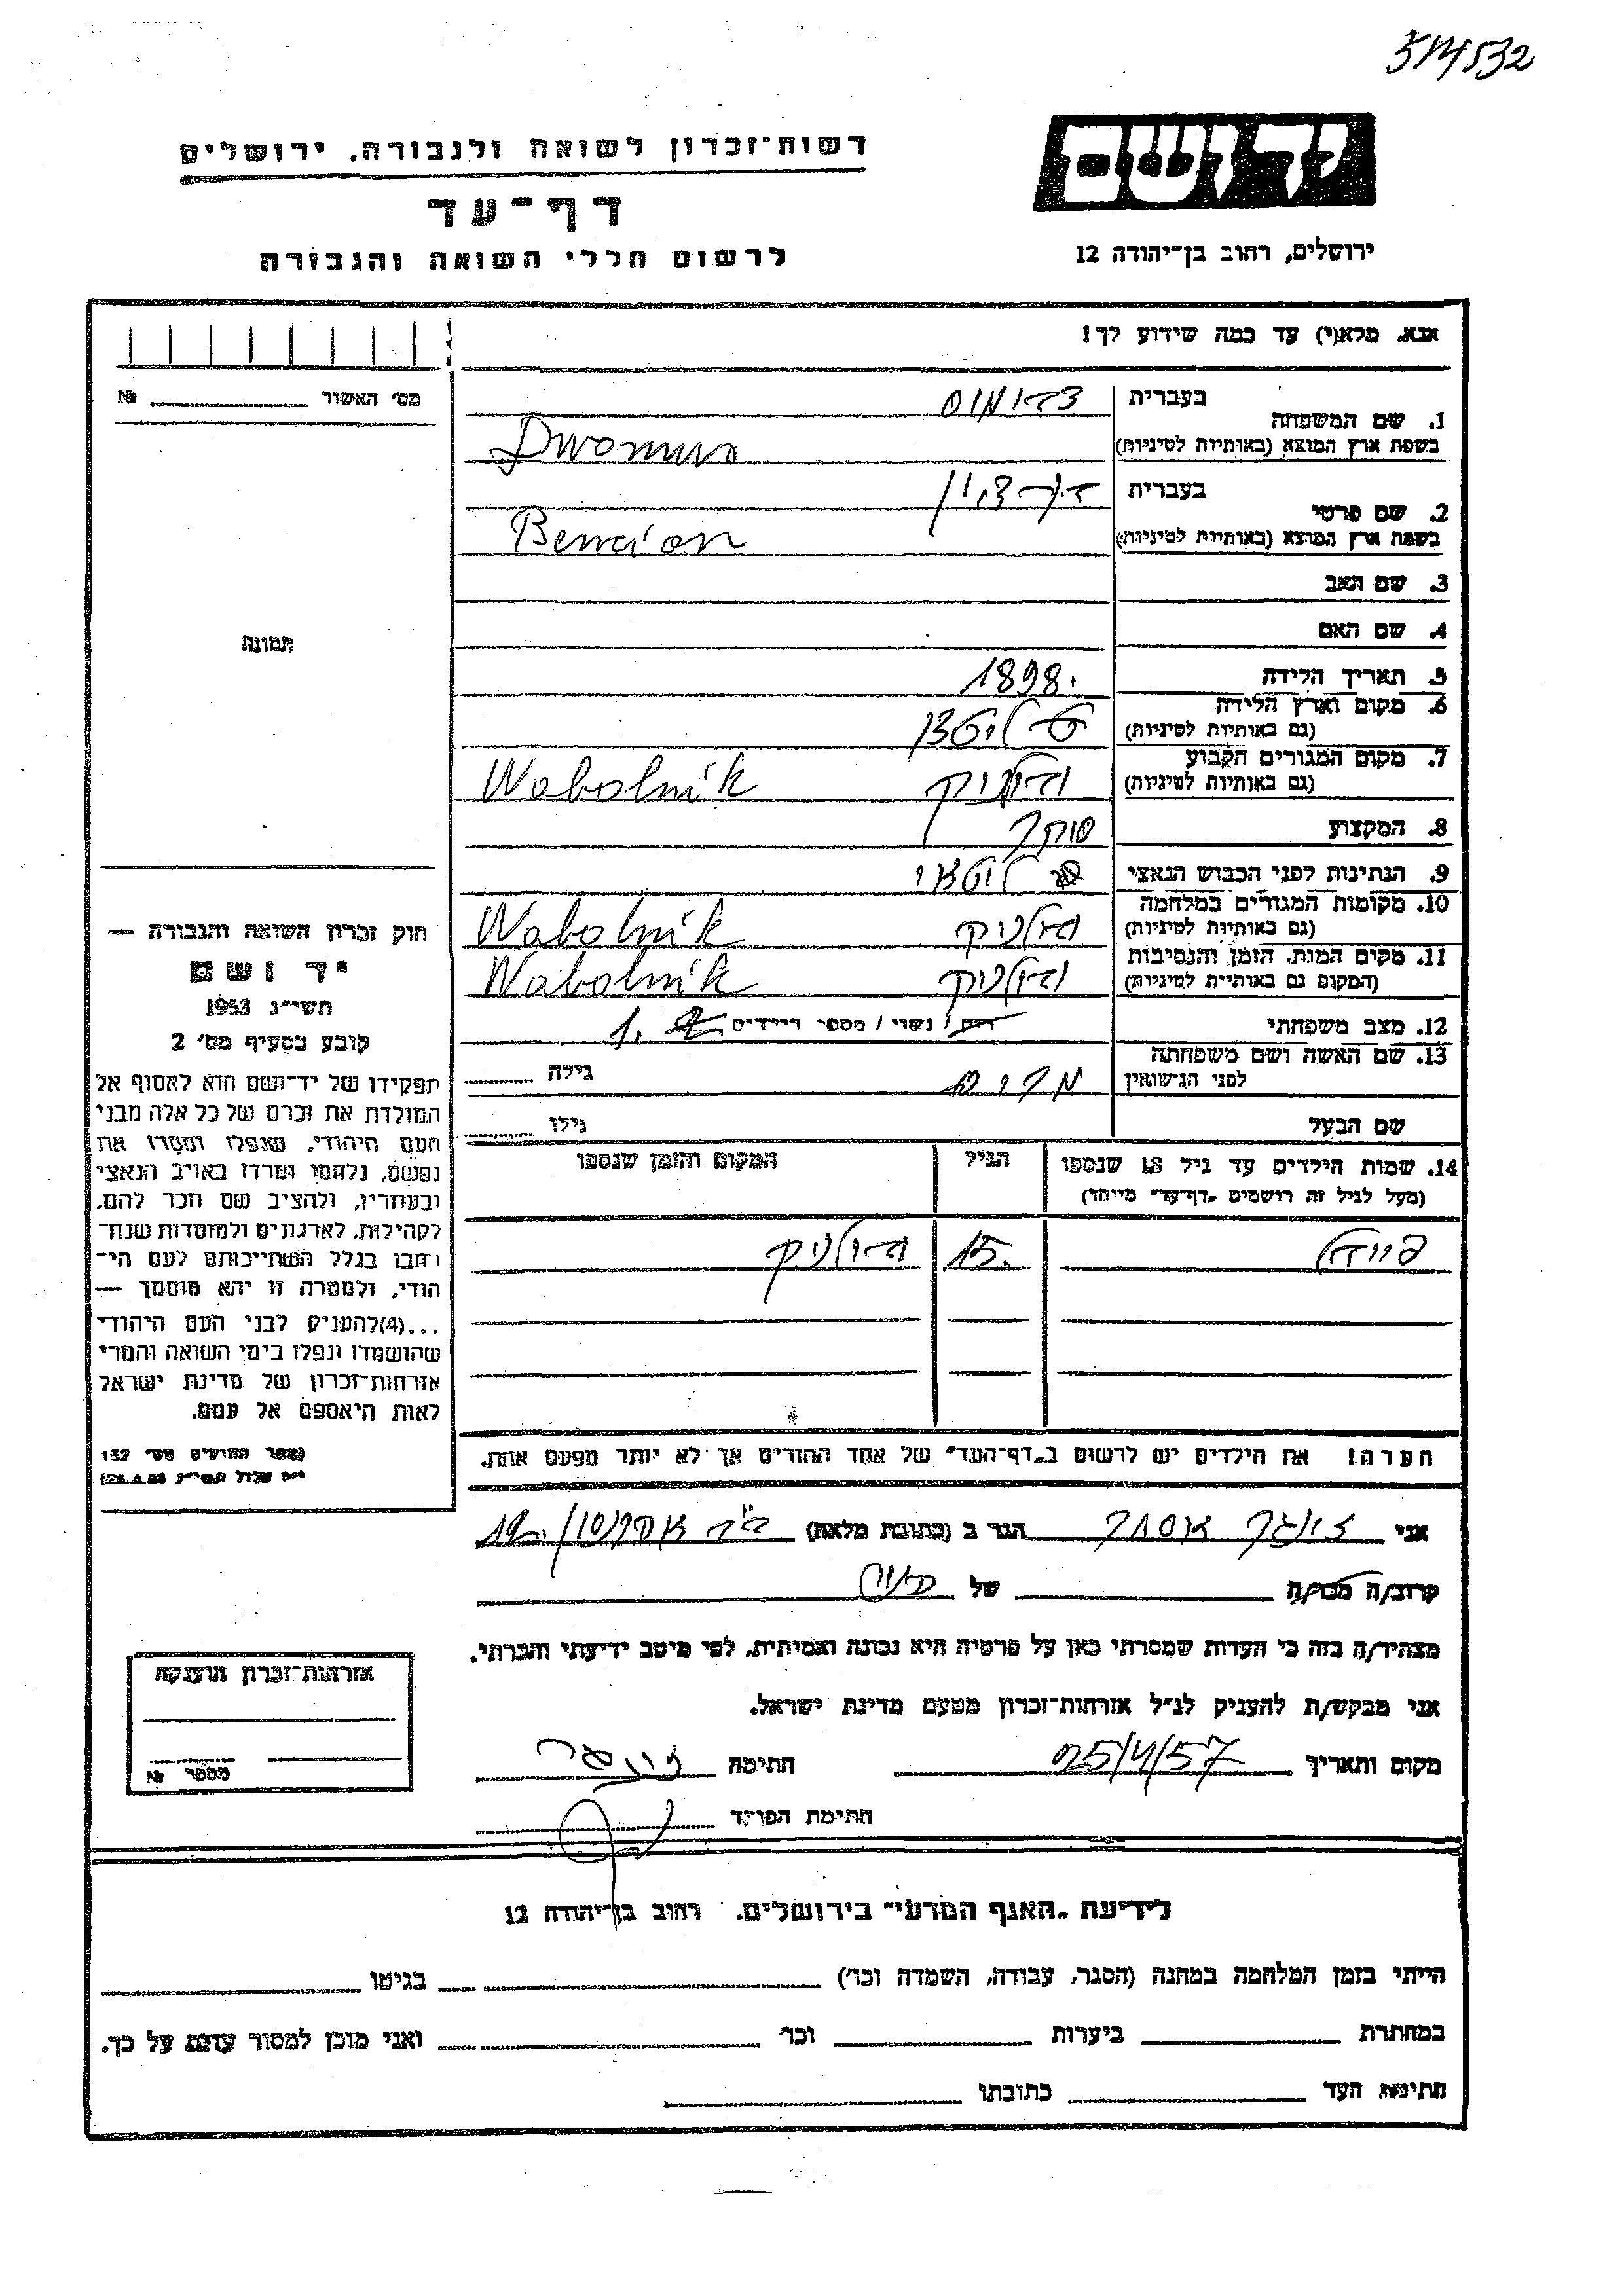 514532
רשות־זכרון לשואה ולגבורה, ירושלים
יד ושם
דף־עד
לרשום חללי השואה והגבורה
ירושלים, רחוב בן־יהודה 12
אנא, מלא(י) עד כמה שידוע לך!
מס' האשור № 
1. שם המשפחה בעברית
בשפת ארץ המוצא (באותיות לטיניות)
2. שם פרטי בעברית בן־ציון
בשפת ארץ המוצא (באותיות לטיניות) Bencion
3. שם האב
4. שם האם
תמונה
5. תאריך הלידה 1898.
6. מקום וארץ הלידה
(גם באותיות לטיניות)
7. מקום המגורים הקבוע Wabolnik
(גם באותיות לטיניות)
8. המקצוע סוחר
9. הנתינות לפני הכבוש הנאצי ליטאי
10. מקומות המגורים במלחמה Wabolnik
(גם באותיות לטיניות)
11. מקום המות, הזמן והנסיבות Wabolnik
(המקום גם באותיות לטיניות)
12. מצב משפחתי רווק / נשוי / מספר הילדים 1.
13. שם האשה ושם משפחתה מרים גילה
לפני הנישואין
שם הבעל גילו
14. שמות הילדים עד גיל 18 שנספו הגיל המקום והזמן שנספו
(מעל לגיל זה רושמים "דף־עד" מיוחד)
15.
הערה! את הילדים יש לרשום ב"דף־העד" של אחד ההורים אך לא יותר מפעם אחת.
חוק זכרון השואה והגבורה —
יד ושם
תשי"ג 1953
קובע בסעיף מס' 2
תפקידו של יד־ושם הוא לאסוף אל
המולדת את זכרם של כל אלה מבני
העם היהודי, שנפלו ומסרו את
נפשם, נלחמו ומרדו באויב הנאצי
ובעוזריו, ולהציב שם וזכר להם,
לקהילות, לארגונים ולמוסדות שנח־
רבו בגלל השתייכותם לעם הי־
הודי, ולמטרה זו יהא מוסמך —
...(4)להעניק לבני העם היהודי
שהושמדו ונפלו בימי השואה והמרי
אזרחות־זכרון של מדינת ישראל
לאות היאספם אל עמם.
(ספר החוקים מס' 132
אני אסתר הגר ב (כתובת מלאה)
קרוב/ה מכר/ה של
מצהיר/ה בזה כי העדות שמסרתי כאן על פרטיה היא נכונה ואמיתית, לפי מיטב ידיעתי והכרתי.
אני מבקש/ת להעניק לנ"ל אזרחות־זכרון מטעם מדינת ישראל.
מקום ותאריך חתימה
חתימת הפוקד
אזרחות־זכרון הוענקה
מספר №
לידיעת "האגף המדעי" בירושלים, רחוב בן־יהודה 12
הייתי בזמן המלחמה במחנה (הסגר, עבודה, השמדה וכו') בגיטו
במחתרת ביערות וכו' ואני מוכן למסור עדות על כך.
חתימת העד כתובתו